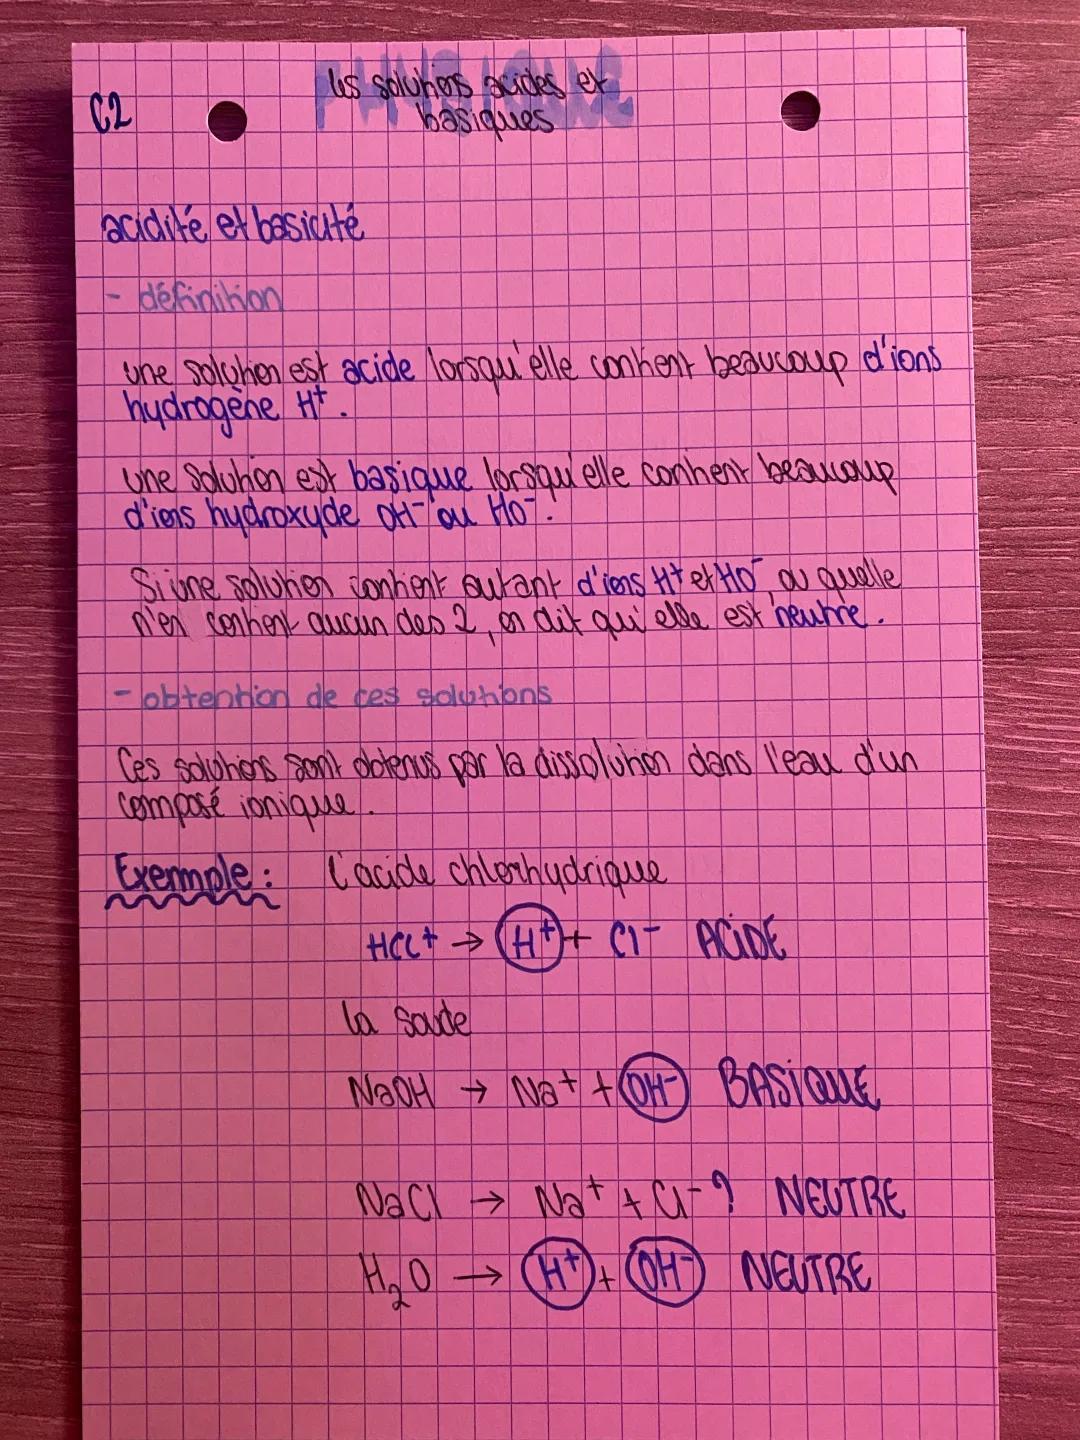 C2
les solutions acides et
basiques
acidité et basicité
- définition
une solution est acide lorsqu'elle contient beaucoup d'ions
hydrogène H⁺.
une solution est basique lorsqu'elle contient beaucoup
d'ions hydroxyde OH⁻ ou HO⁻.
Si une solution contient autant d'ions H⁺ et HO⁻ ou quelle
n'en contient aucun des 2, on dit qu'elle est neutre.
- obtention de ces solutions
Ces solutions sont obtenus par la dissolution dans l'eau d'un
composé ionique.
Exemple : L'acide chlorhydrique
HCl+ → H⁺ + Cl⁻ ACIDE
la soude
NaOH → Na⁺ + OH⁻ BASIQUE
NaCl → Na⁺ + Cl⁻ ? NEUTRE
H₂O → H⁺ + OH⁻ NEUTRE